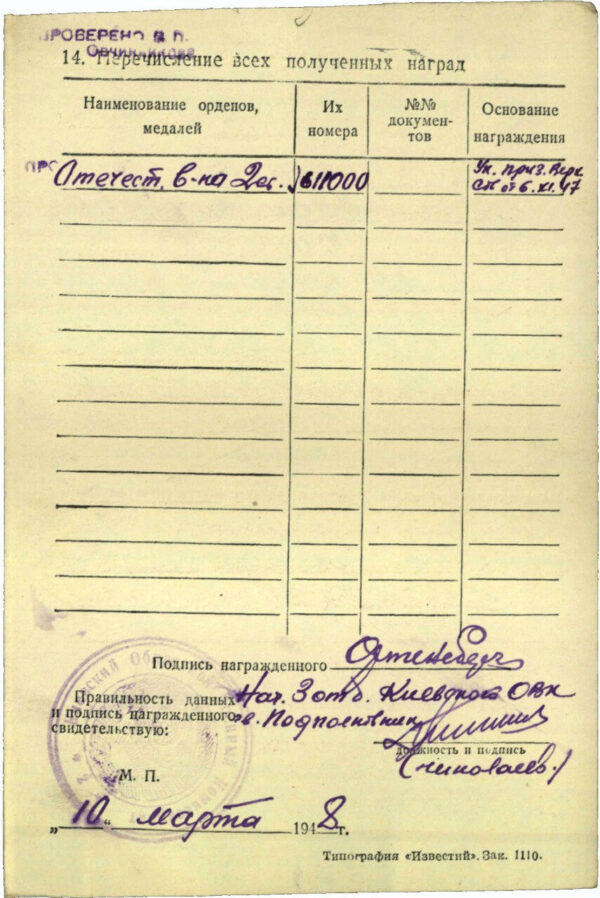 ПРОВЕРЕНО В П.
Овчинникова
14. Перечисление всех полученных наград
Наименование орденов, медалей
Их номера
№№ докумен-тов
Основание награждения
Отечест. в-на 2 ст.
611000
Ук. През. Верх.
от 6.XI.47
Подпись награжденного
Правильность данных Нач. 3 отд. Киевского ОВК
и подпись награжденного Подполковник
свидетельствую:
должность и подпись
М. П.
„10" марта 1948 г.
Типография «Известий». Зак. 1110.